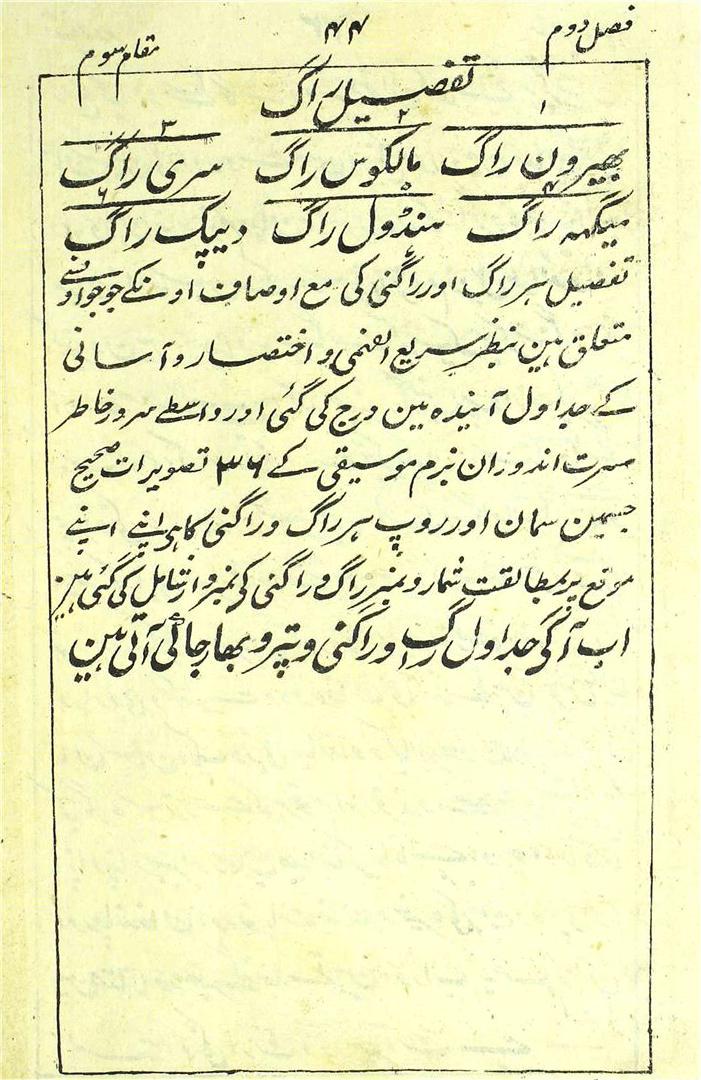 فصل دوم ۴۴ مقام سوم
تفصیل راگ
۱ ۲ ۳
بھیرون راگ مالکوس راگ سری راگ
۴ ۵ ۶
میگہہ راگ ہنڈول راگ دیپک راگ
تفصیل ہر راگ اور راگنی کی مع اوصاف اونکے جو جو اونسے
متعلق ہین بنظر سریع الفہمی و اختصار و آسانی
کے جداول آیندہ مین درج کی گئی اور واسطے سرور خاطر
مسرت اندوزان بزم موسیقی کے ۳۶ تصویرات صحیح
جسمین سمان اور روپ ہر راگ و راگنی کا ہی اپنے اپنے
موقع پر بمطابقت شمار و نمبر راگ و راگنی کی نمبروار شامل کی گئی ہین
اب آگی جداول راگ اور راگنی و پترو بھارجا کی آتی ہین